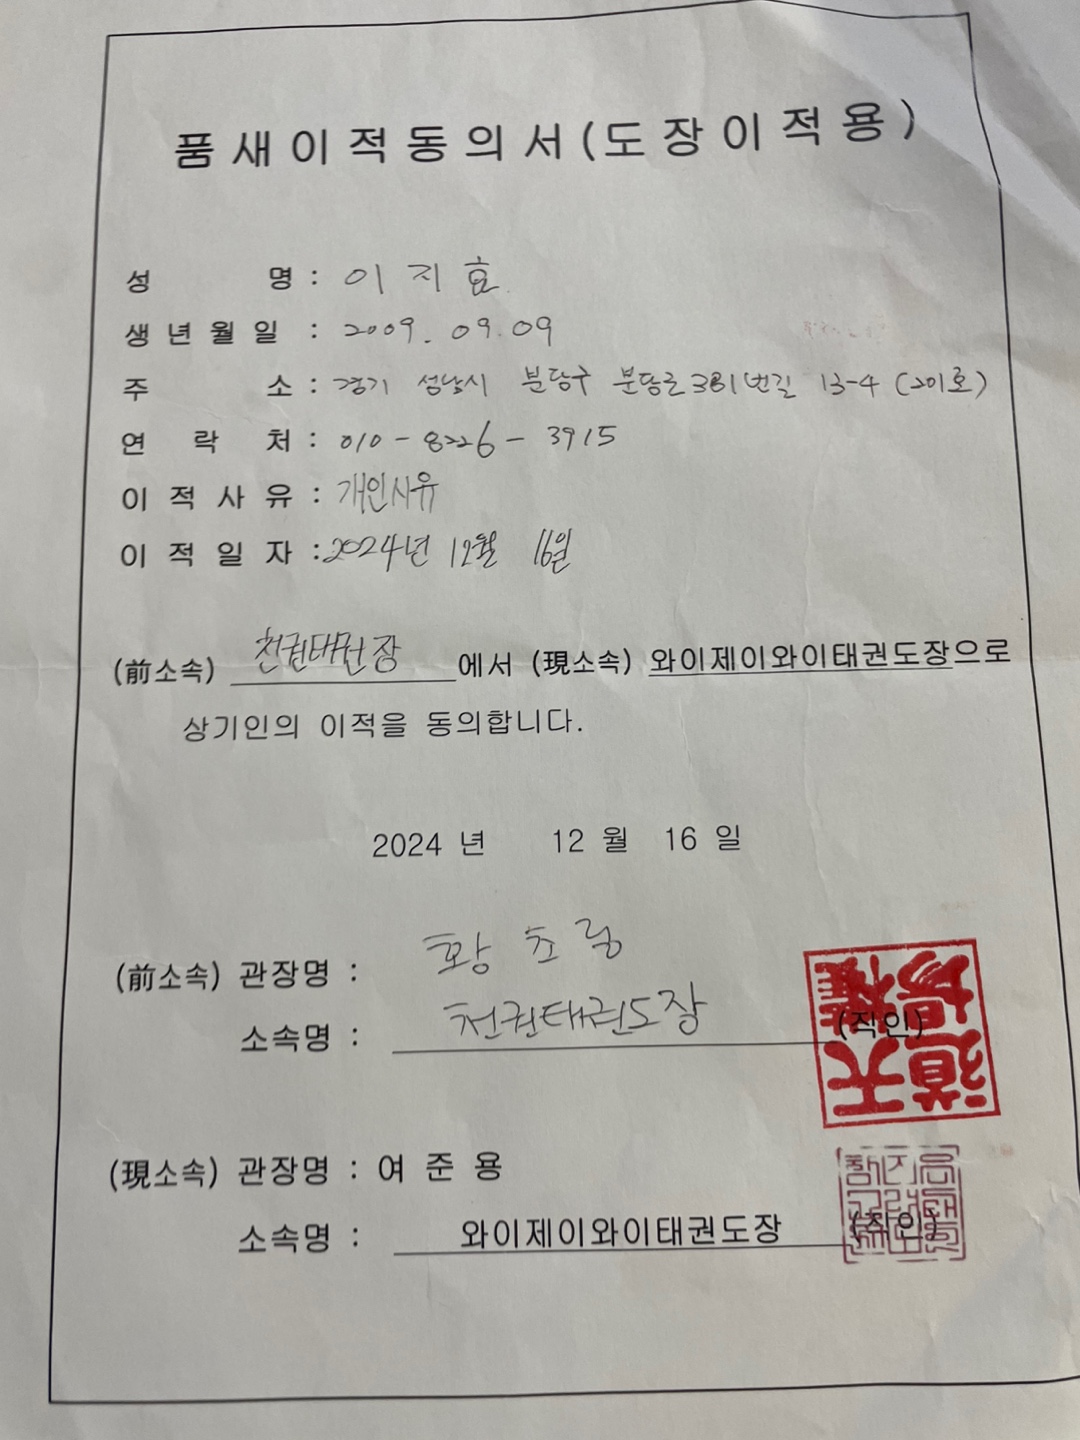 품새이적동의서(도장이적용)
성 명 : 이지효
생년월일 : 2009. 09. 09
주 소 : 경기 성남시 분당구 분당로381번길 13-4 (201호)
연 락 처 : 010-8226-3915
이적사유 : 개인사유
이적일자 : 2024년 12월 16일
(前소속) 천권태권장 에서 (現소속) 와이제이와이태권도장으로
상기인의 이적을 동의합니다.
2024 년 12 월 16 일
(前소속) 관장명 : 황초롱
소속명 : 천권태권도장 (직인)
(現소속) 관장명 : 여준용
소속명 : 와이제이와이태권도장 (직인)